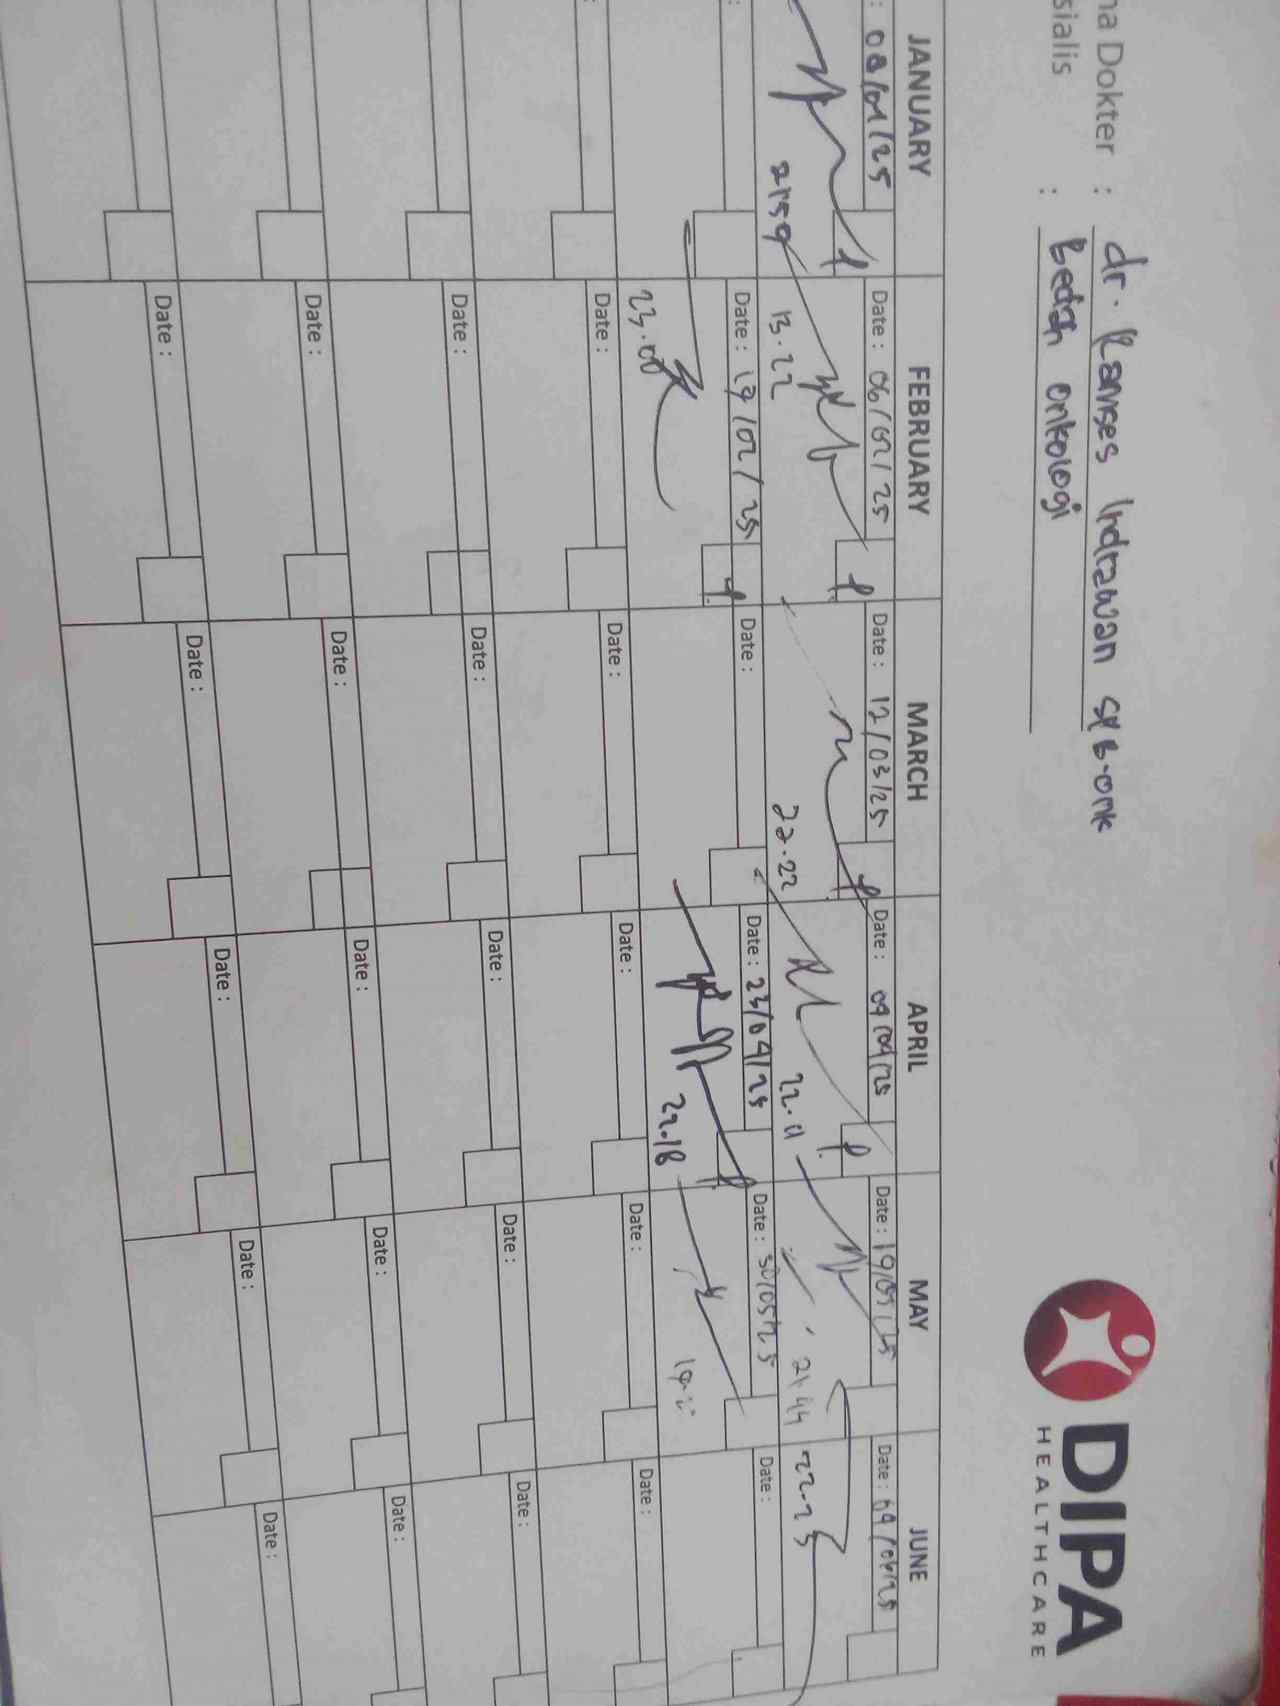 na Dokter : dr. Ramses Indrawan SpB-onk
sialis : Bedah onkologi
DIPA
HEALTHCARE
JANUARY FEBRUARY MARCH APRIL MAY JUNE
: 08/01/25 Date : 06/02/25 Date : 12/03/25 Date : 09/04/25 Date : 19/05/25 Date : 04/06/25
21:59 13.22 22.22 22.11 21.44 22.25
: Date : 19/02/25 Date : Date : 23/04/25 Date : 30/05/25 Date :
23.08 22.18
: Date : Date : Date : Date : Date :
Date : Date : Date : Date : Date :
Date : Date : Date : Date : Date :
Date : Date : Date : Date : Date :